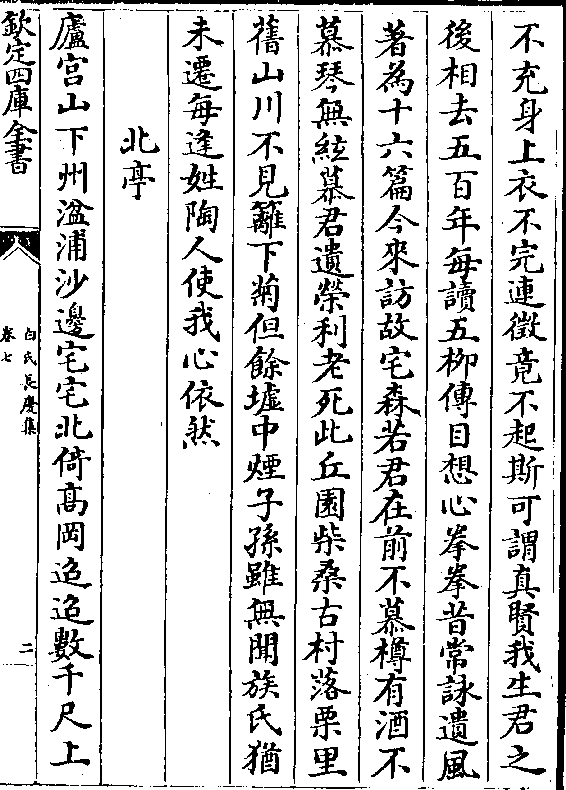 不充身上衣不完連徵竟不起斯可謂真賢我生君之
後相去五百年每讀五柳傳目想心拳拳昔常詠遺風
著為十六篇今來訪故宅森若君在前不慕樽有酒不
慕琴無絃慕君遺榮利老死此丘園柴桑古村落栗里
舊山川不見籬下菊但餘墟中煙子孫雖無聞族氏猶
未遷每逢姓陶人使我心依然
北亭
廬宫山下州湓浦沙邊宅宅北倚髙岡迢迢數千尺上
欽定四庫全書
白氏長慶集
卷七
二